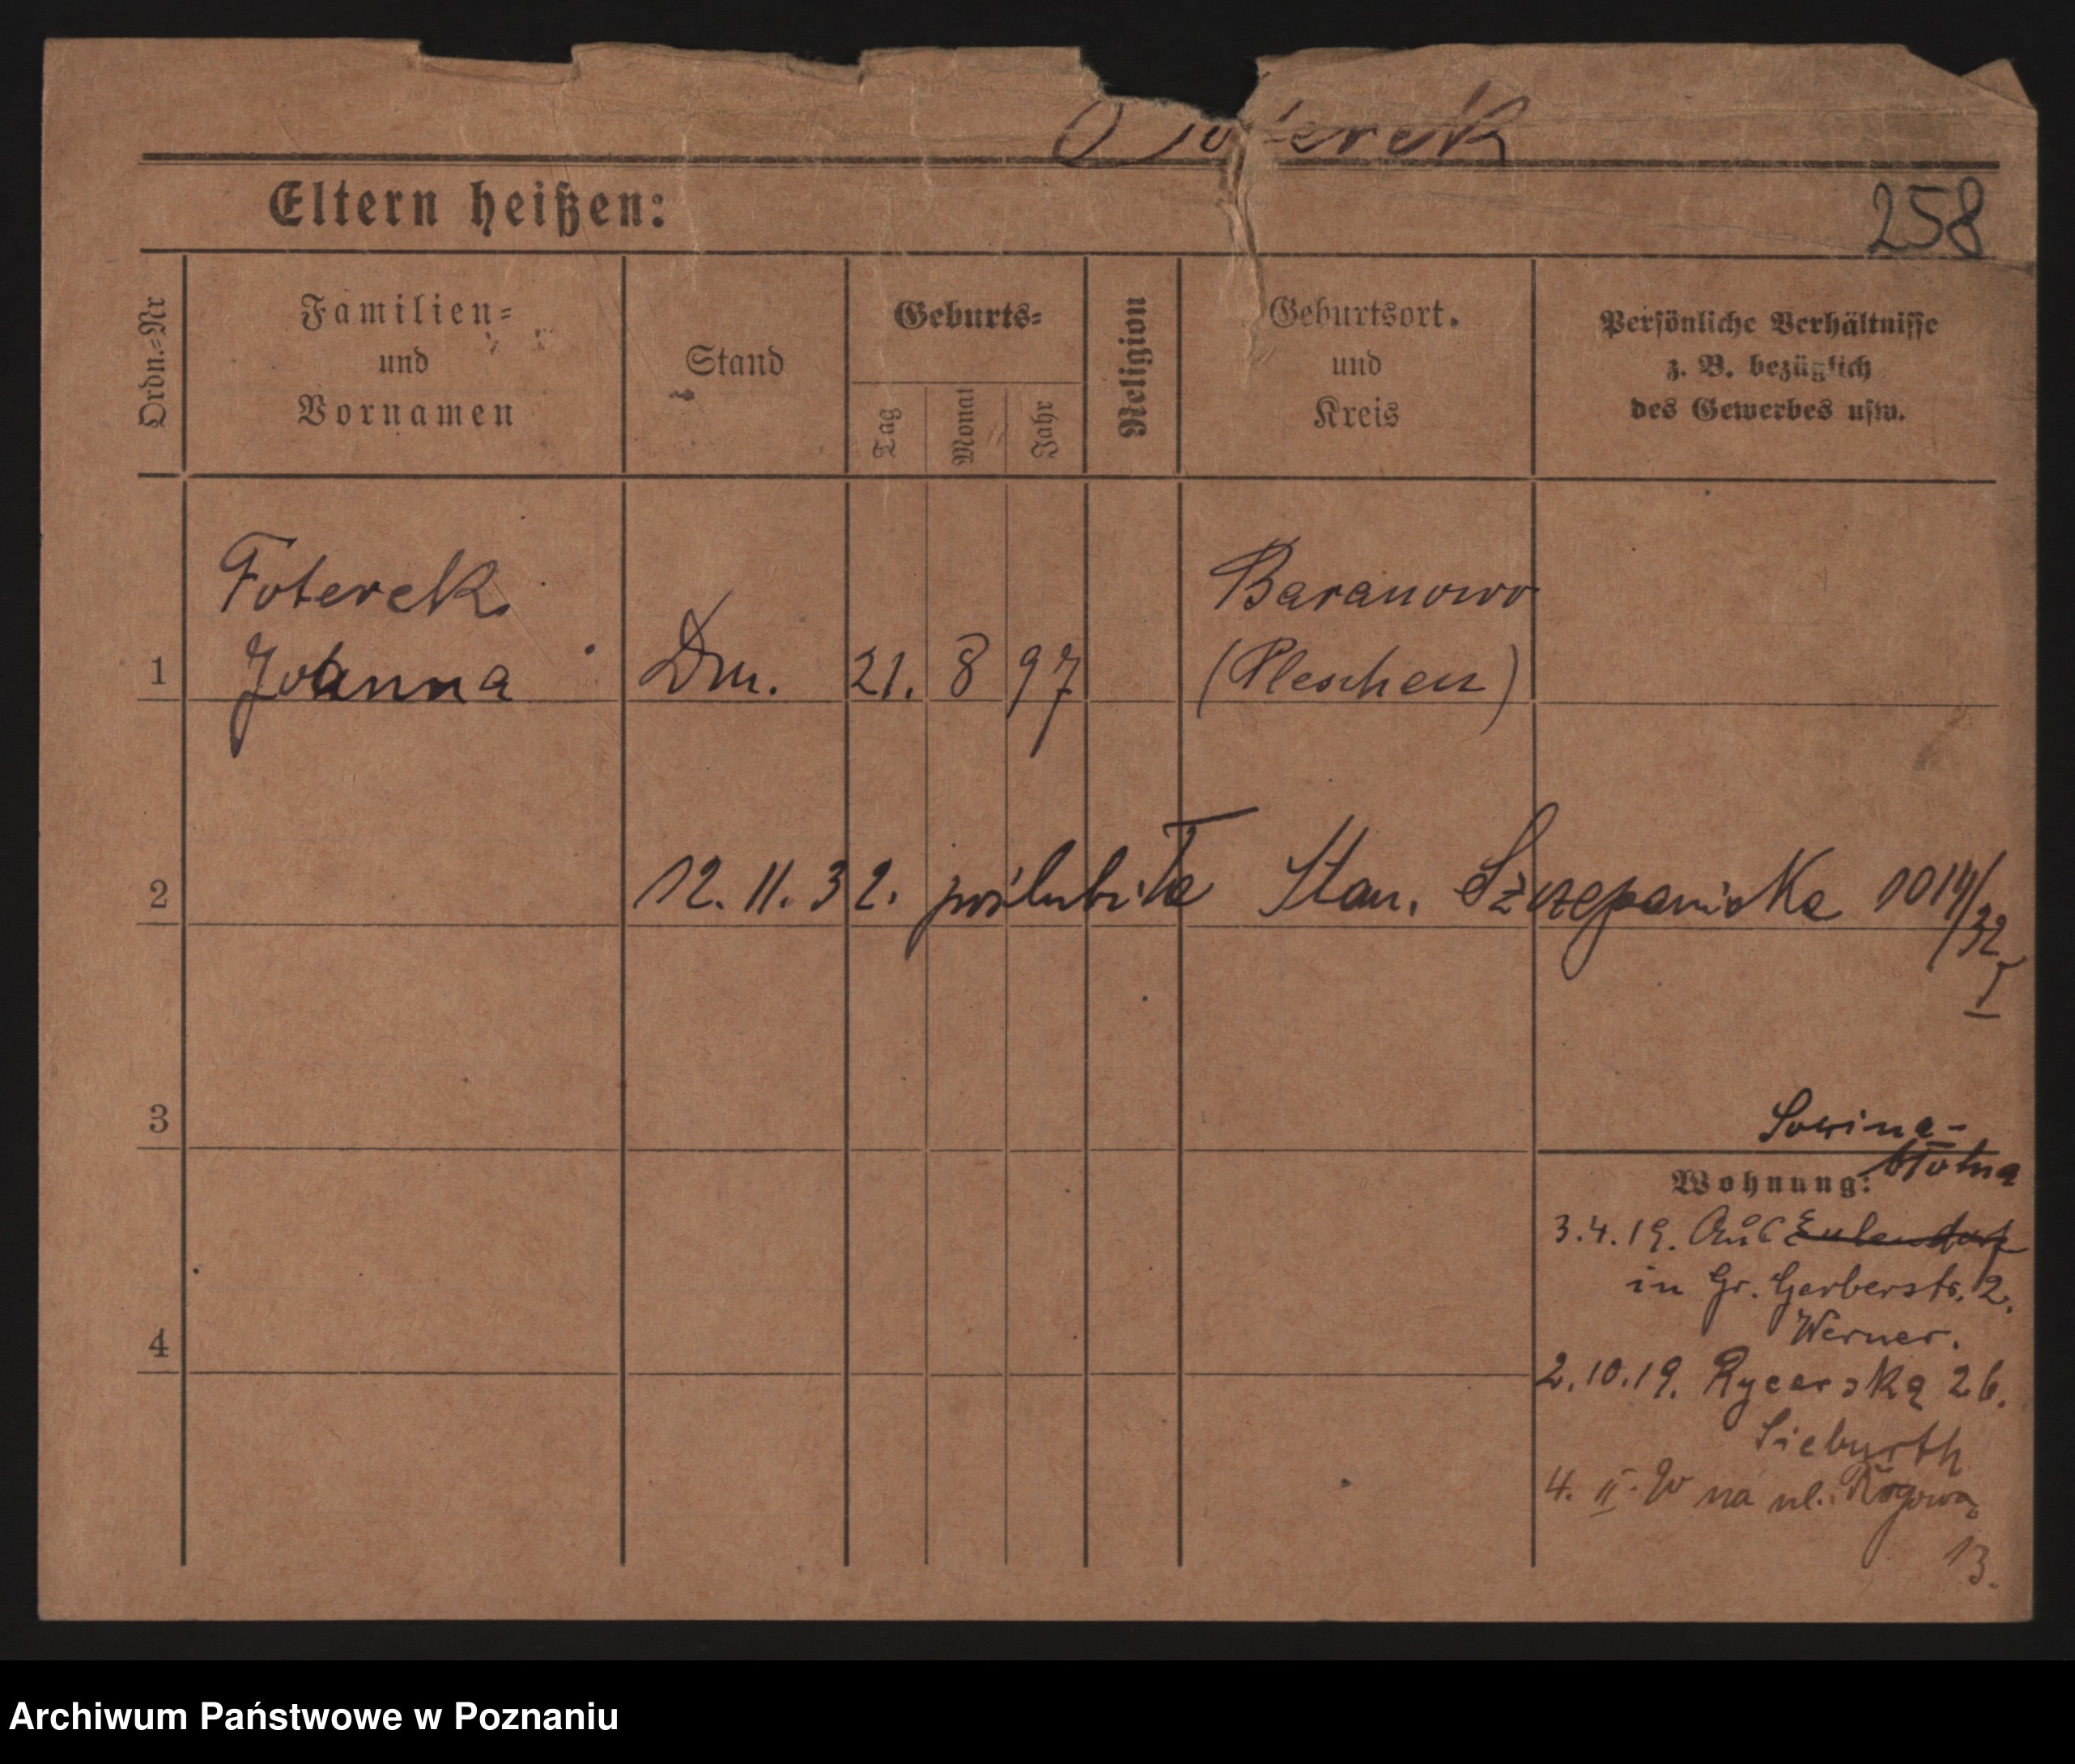 Eltern heißen:
258
Ordn.=Nr
Familien=
und
Vornamen
Stand
Geburts=
Tag
Monat
Jahr
Religion
Geburtsort.
und
Kreis
Persönliche Verhältnisse
z. B. bezüglich
des Gewerbes usw.
Foterek
Johanna
Baranowo
1
Dm. 21. 8 97
(Pleschen)
2
12. 11. 32. poślubiła Stan. Szczepaniaka 1014/32
I
3
Sowina-
błotna
Wohnung:
3.4.19. Aus Eulendorf
in Gr. Gerberstr. 2.
Werner.
4
2.10.19. Rycerska 26.
Sieburth
4. II. 20 na ul.
13.